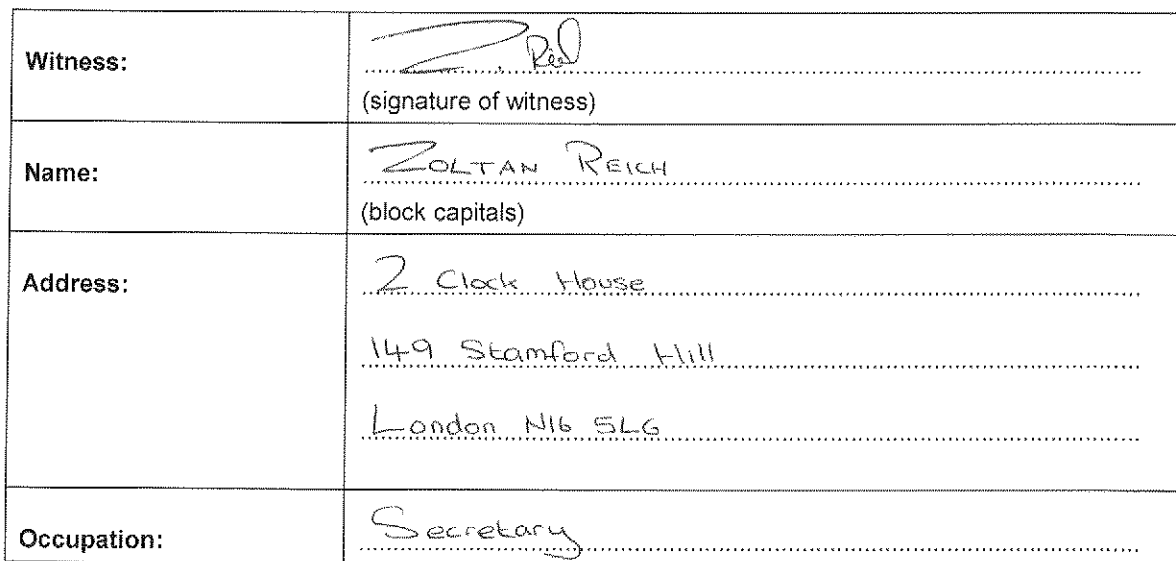 Witness:
Z. Rei
(signature of witness)
Name:
ZOLTAN REICH
(block capitals)
Address:
2 Clock House
149 Stamford Hill
London N16 5LG
Occupation:
Secretary